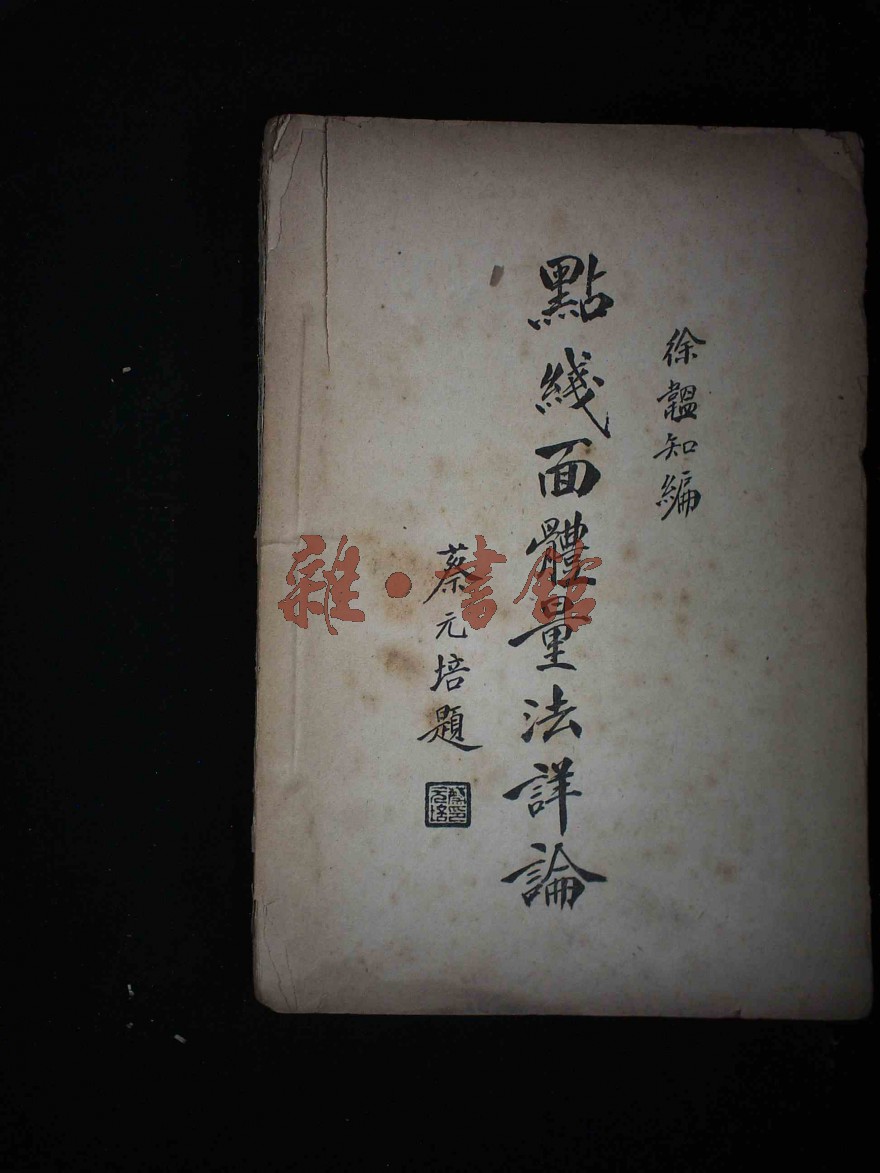 徐韞知編
點綫面體量法詳論
蔡元培題
蔡元培印
雜·書館